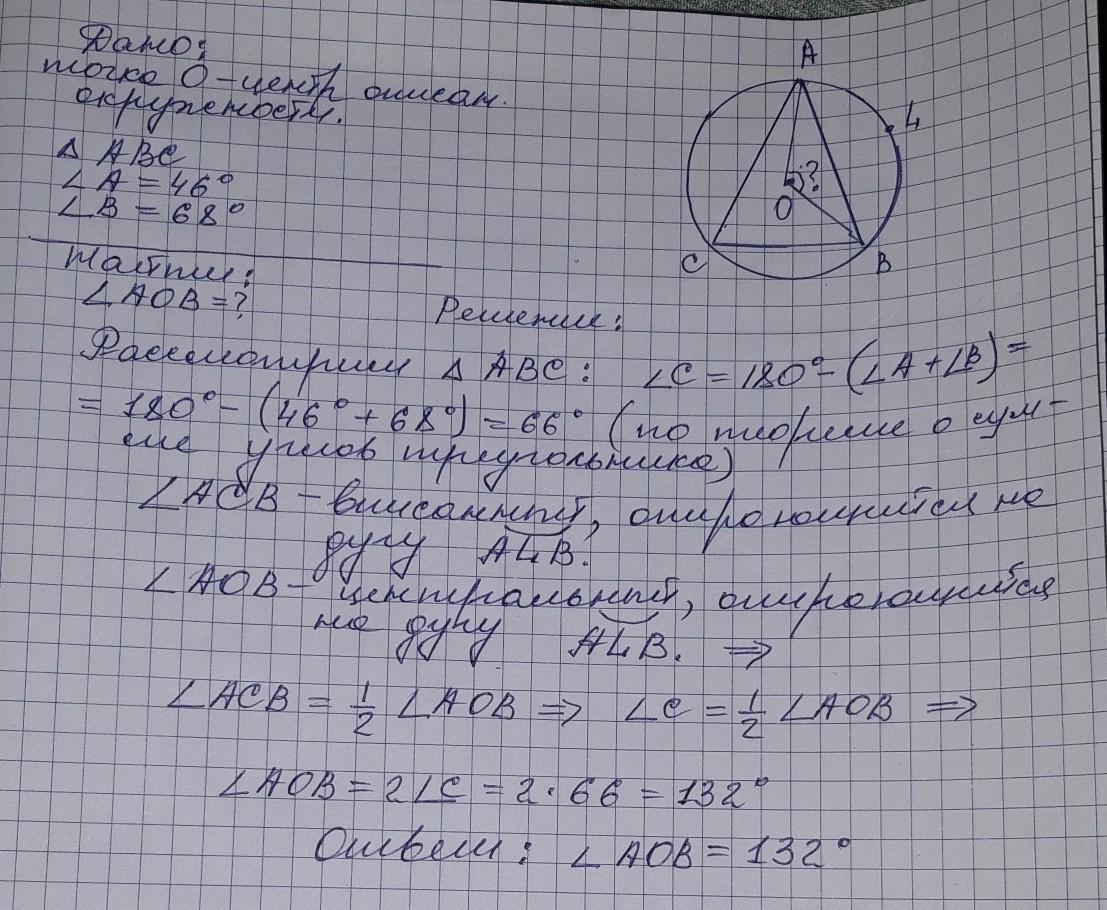 Дано:
точка О – центр описан.
окружности.
Δ ABC
∠A = 46°
∠B = 68°
Найти:
∠AOB = ?
A
L
?
O
C
B
Решение:
Рассмотрим Δ ABC: ∠C = 180° – (∠A + ∠B) =
= 180° – (46° + 68°) = 66° (по теореме о сум-
ме углов треугольника)
∠ACB – вписанный, опирающийся на
дугу ALB.
∠AOB – центральный, опирающийся
на дугу ALB. ⇒
∠ACB = 1/2 ∠AOB ⇒ ∠C = 1/2 ∠AOB ⇒
∠AOB = 2∠C = 2 · 66 = 132°
Ответ: ∠AOB = 132°